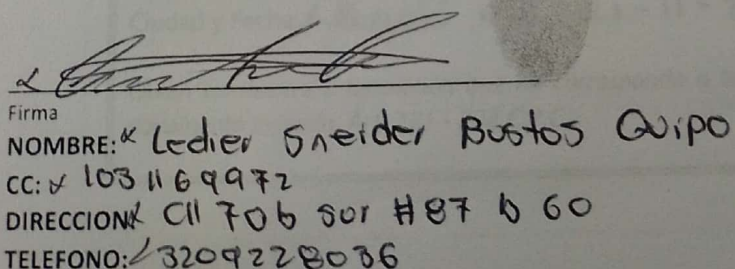 Firma
NOMBRE: Ledier Sneider Bustos Quipo
CC: 1031169972
DIRECCION Cll 70b sur #87 b 60
TELEFONO: 3209228036